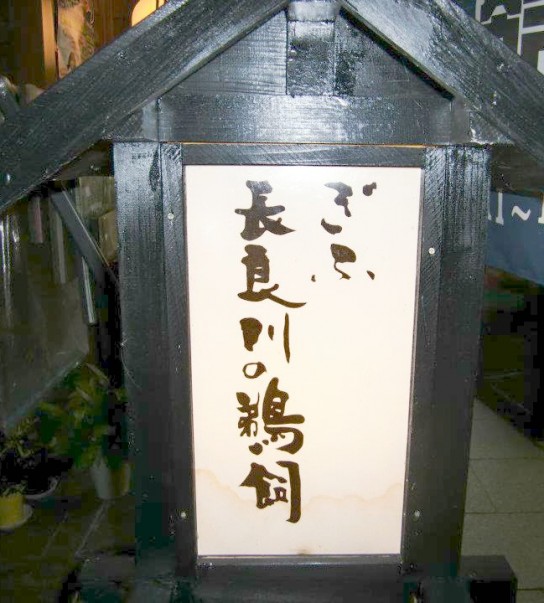 ぎふ
長良川の鵜飼